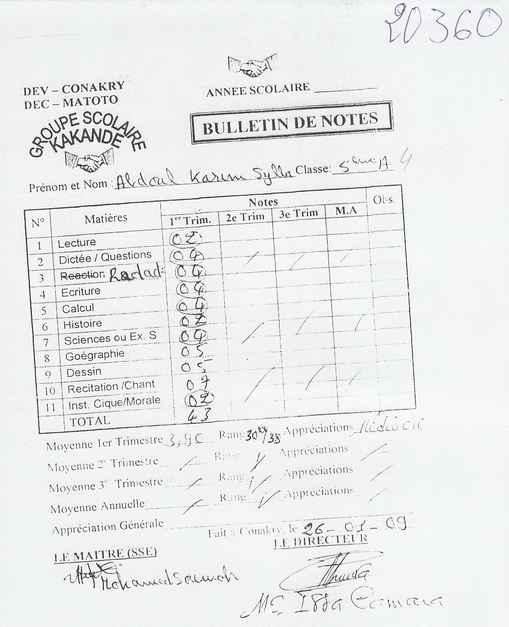 20360
DEV – CONAKRY
DEC – MATOTO
GROUPE SCOLAIRE
KAKANDE
ANNEE SCOLAIRE
BULLETIN DE NOTES
Prénom et Nom : Abdoul Karim Sylla Classe: 5ème A 4
N° Matières Notes Obs.
1er Trim. 2e Trim 3e Trim M.A
1 Lecture 02
2 Dictée / Questions 04
3 Reaction Redact 04
4 Ecriture 04
5 Calcul 04
6 Histoire
7 Sciences ou Ex. S 04
8 Goégraphie 05
9 Dessin 05
10 Recitation /Chant 07
11 Inst. Cique/Morale 02
TOTAL 43
Moyenne 1er Trimestre 3,90 Rang 30ex/38 Appréciations Médiocre
Moyenne 2e Trimestre Rang Appréciations
Moyenne 3e Trimestre Rang Appréciations
Moyenne Annuelle Rang Appréciations
Appréciation Générale
Fait à Conakry, le 26-01-09
LE MAITRE (SSE) LE DIRECTEUR
Mohamed Soumah
Mr Issa Camara